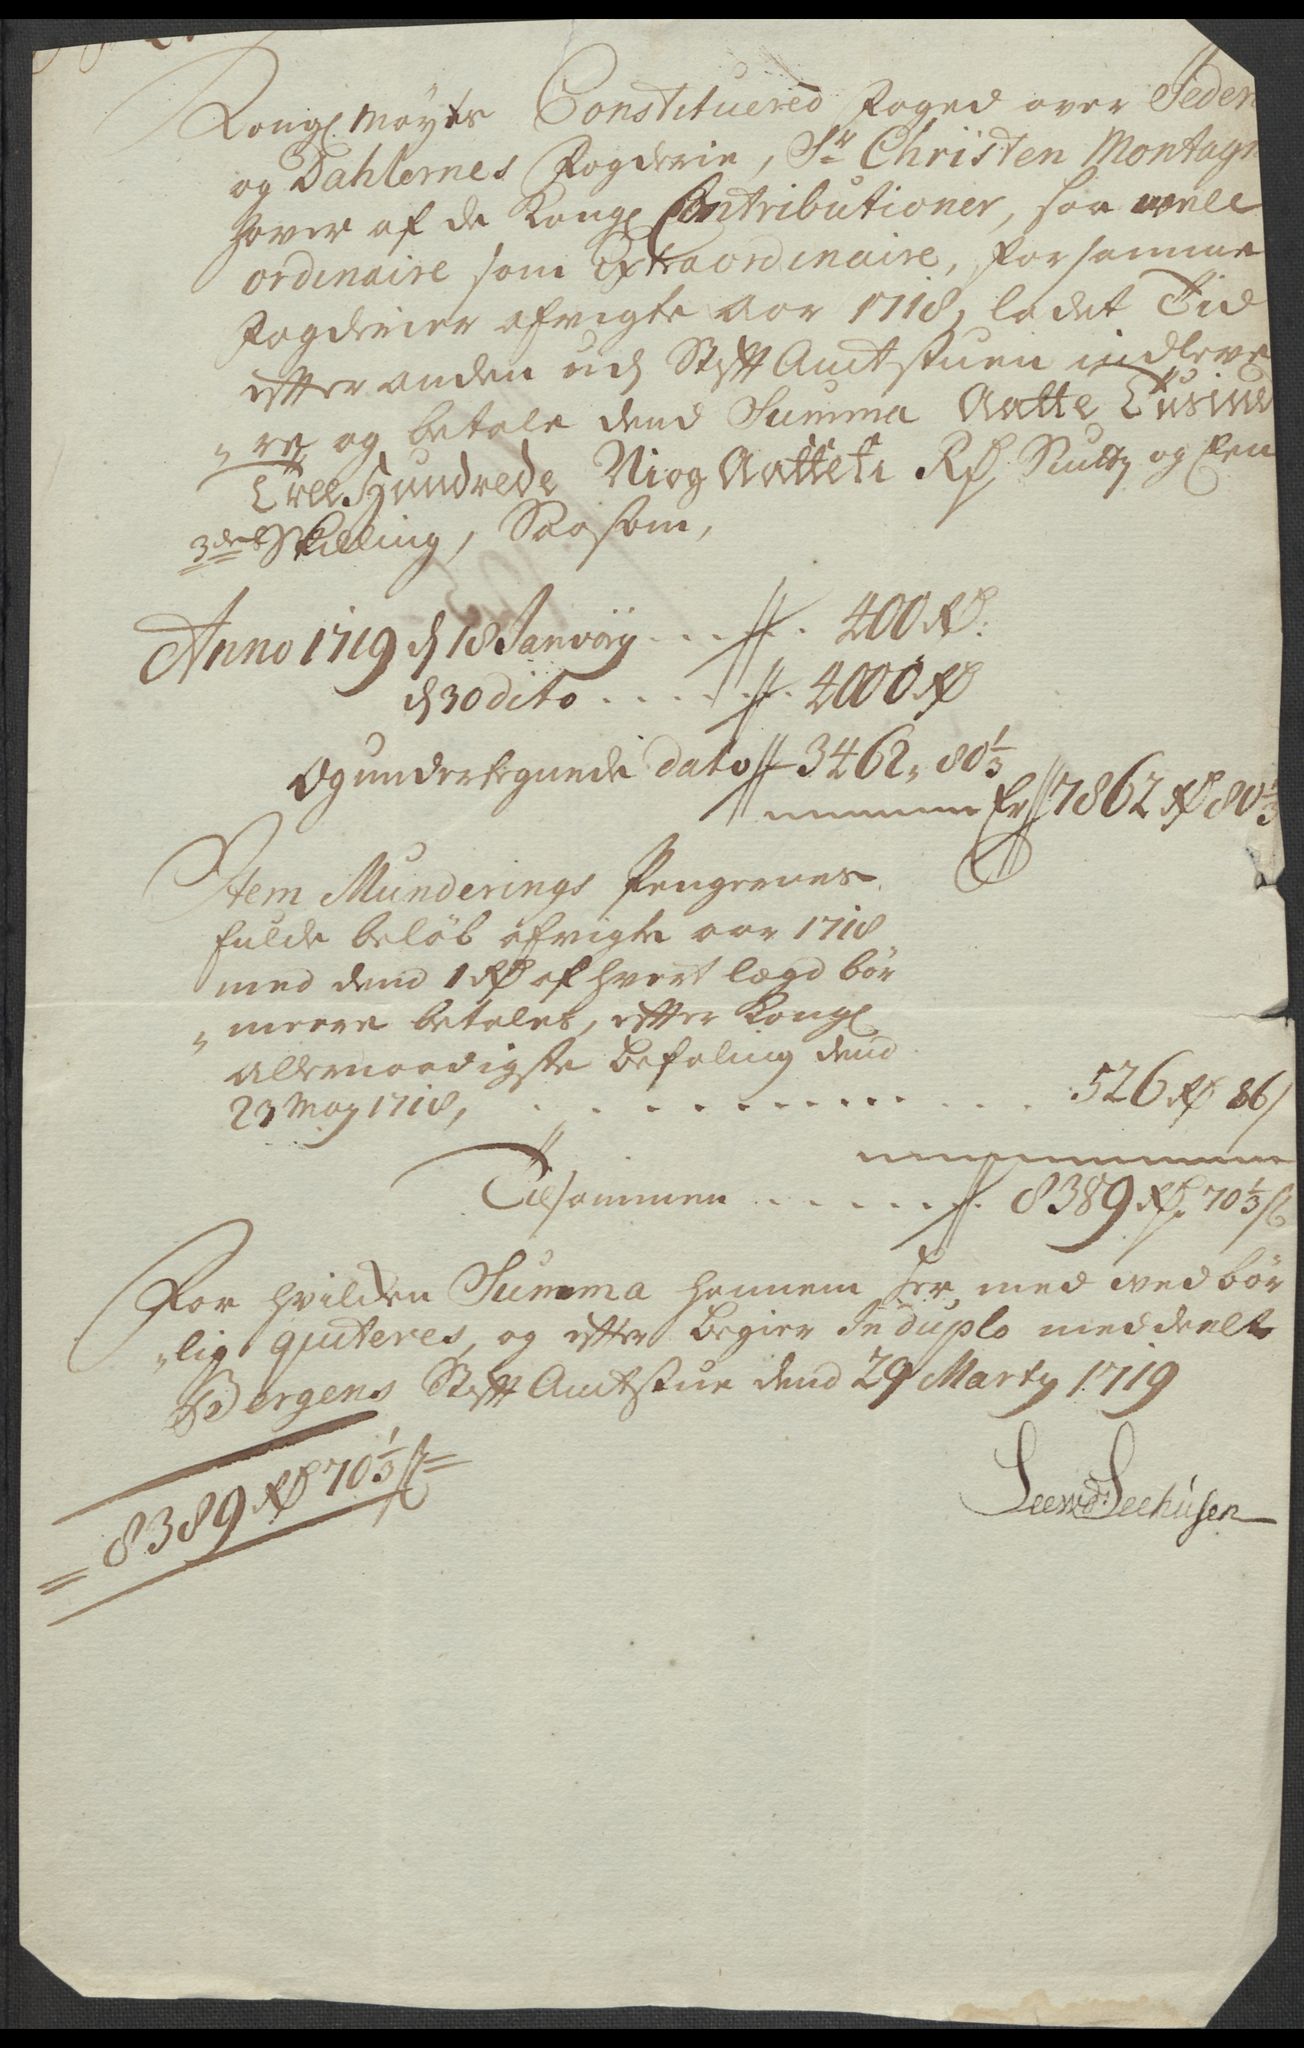 Kongl Mayts Constituered Foged over Jeder
og Dahlernes Fogderie, Sr Christen Montagn
haver af de Kongl Contributioner, saa well
ordinaire som Extraordinaire, for samme
Fogderier afvigte aar 1718, ladet Tid
efter anden udj Stift Amtstuen indleve
"re og betale dend Summa Aatte Tusind
Tree Hundrede Niog Aatteti Rd og Een
3des Skilling, Saasom,
Anno 1719 d 18 Janvarij . . . 400 Rd:
d 30 dito . . . . . 4000 Rd
Og undertegnede dato 3462, 80 1/3
Er 7862 Rd 80 1/3
Item Munderings Pengernes
fulde beløb afvigte aar 1718
med dend 1 Rd af hvert lægd bør
" meere betales, efter Kongl
Allernaadigste befaling dend
23 May 1718, . . . . . . . . . . 526 Rd 86 s
Tilsammen . . . . . 8389 Rd. 70 1/3 s
For hvilden Summa hannem her med vedbør
"lig quiteres, og efter begier In duplo meddeelt
Bergens Stift Amtstue dend 29 Marty 1719
8389 Rd 70 1/3 s
Seehusen